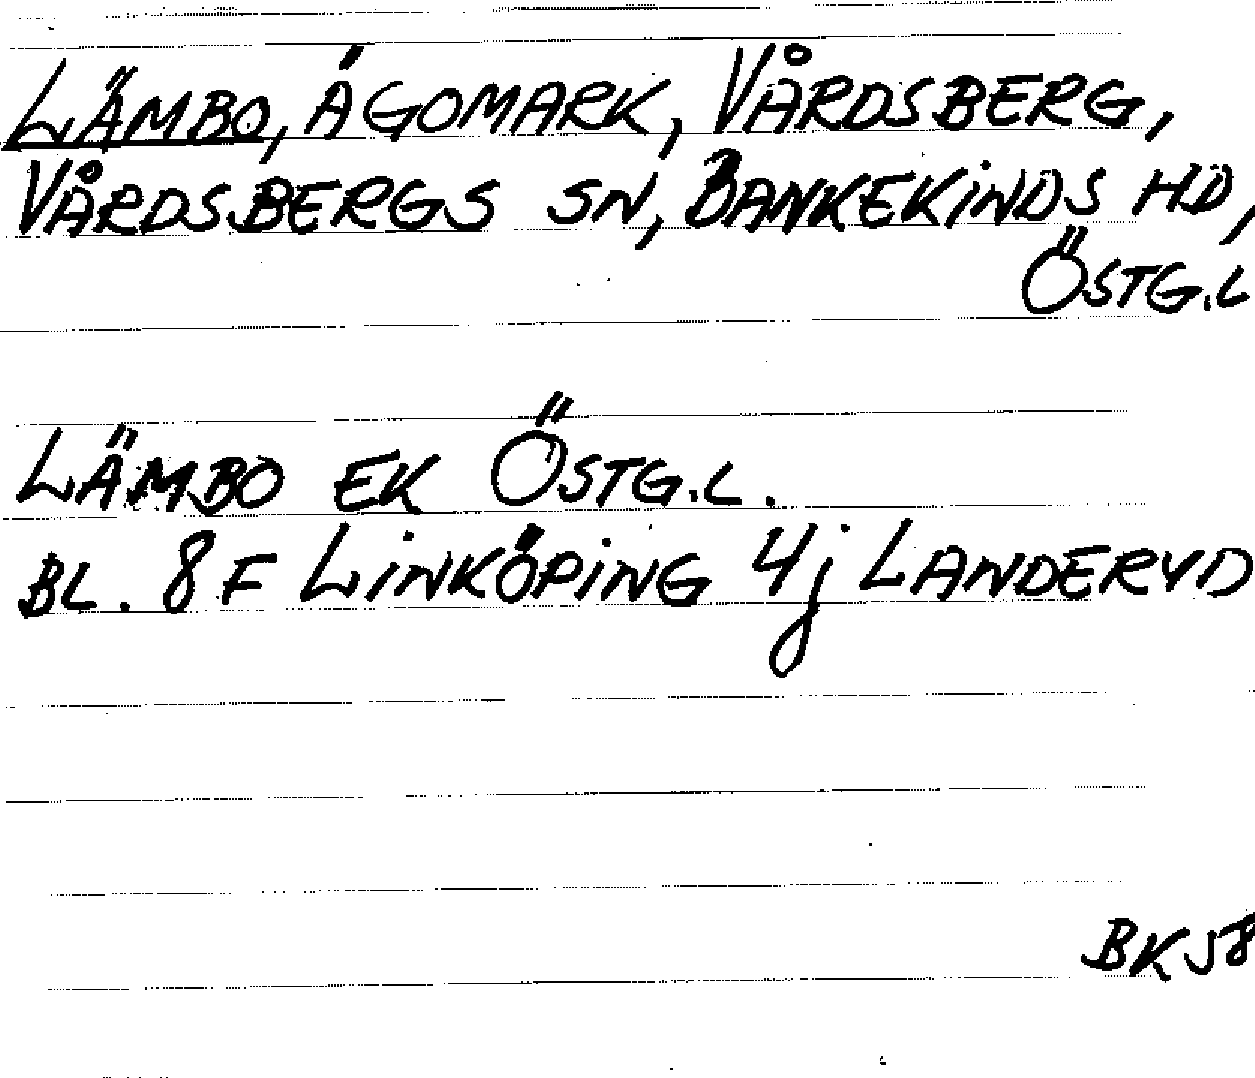 LÄMBO, ÄGOMARK, VÅRDSBERG,
VÅRDSBERGS SN, BANKEKINDS HD,
ÖSTG.L
LÄMBO EK ÖSTG.L.
BL. 8F LINKÖPING 4j LANDERYD